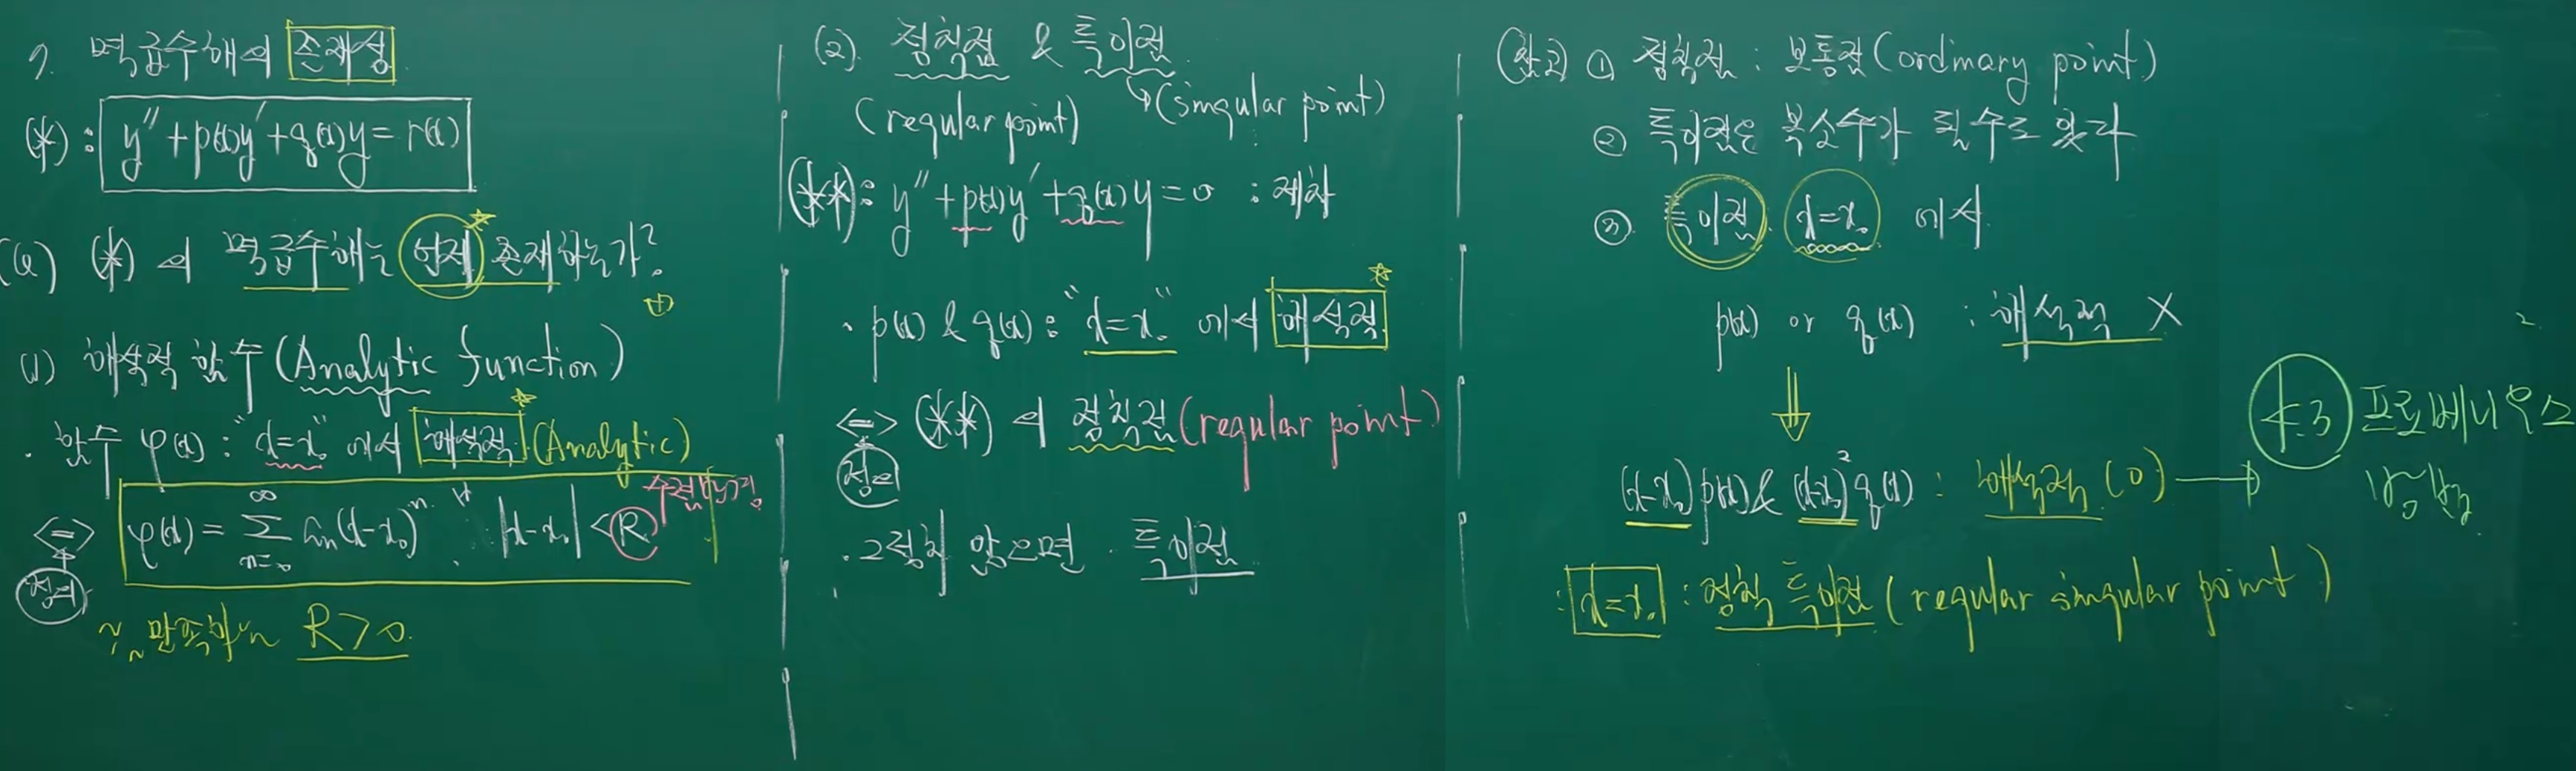 7. 멱급수해의 존재성
(*) : y'' + p(x)y' + q(x)y = r(x)
(Q) (*)의 멱급수해는 언제 존재하는가?
(1) 해석적 함수 (Analytic function)
· 함수 φ(x) : "x=x₀"에서 해석적 (Analytic)
⇔ φ(x) = Σ_{n=0}^{∞} aₙ(x-x₀)ⁿ, ∀ |x-x₀| < R 수렴반경
정의
만족하는 R > 0.
(2). 정칙점 & 특이점
(regular point) (singular point)
(**) : y'' + p(x)y' + q(x)y = 0 : 제차
· p(x) & q(x) : "x=x₀"에서 해석적
⇔ (**)의 정칙점 (regular point)
정의
· 그렇지 않으면 특이점
(참고) ① 정칙점 : 보통점 (ordinary point)
② 특이점은 복소수가 될 수도 있다
③ 특이점 x=x₀ 에서
p(x) or q(x) : 해석적 X
⇓
(x-x₀)p(x) & (x-x₀)²q(x) : 해석적 (0) → 4.3 프로베니우스
방법
: x=x₀ : 정칙 특이점 (regular singular point)